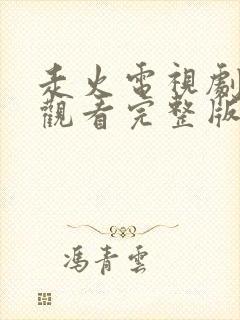 汞火電視劇
觀看完整版
馮青雲